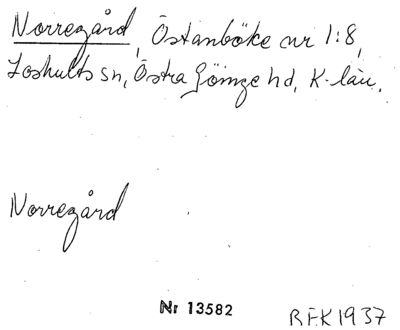 Norregård, Östanböke nr 1:8,
Loshults sn, Östra Göinge hd, K-län.
Norregård
Nr 13582
BEK 1937